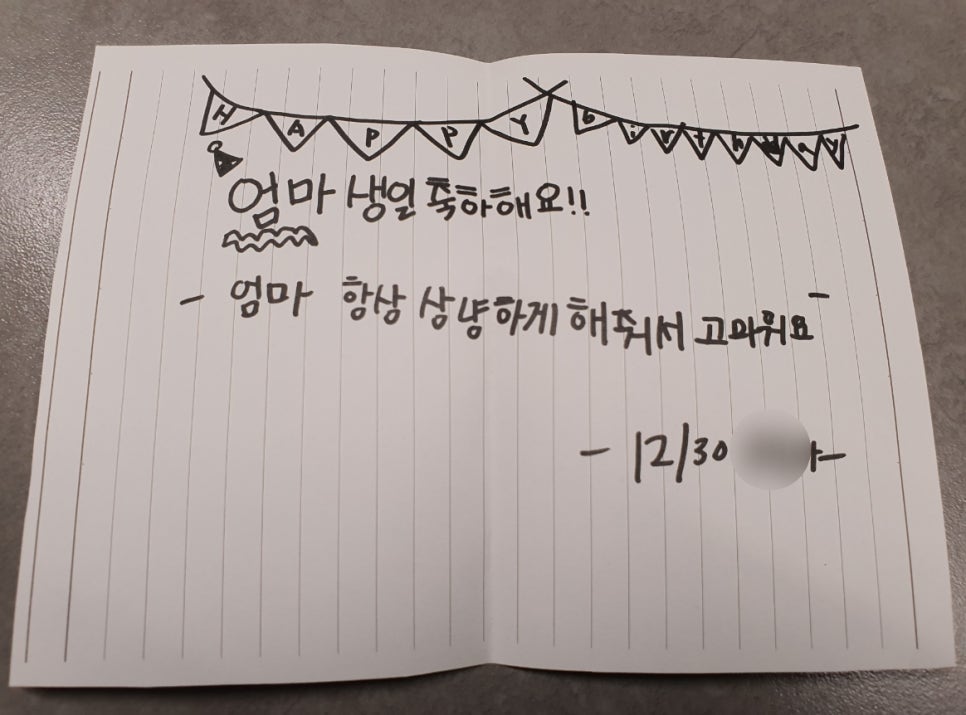 HAPPY birthday
엄마 생일 축하해요!!
- 엄마 항상 상냥하게 해줘서 고마워요 -
- 12/30